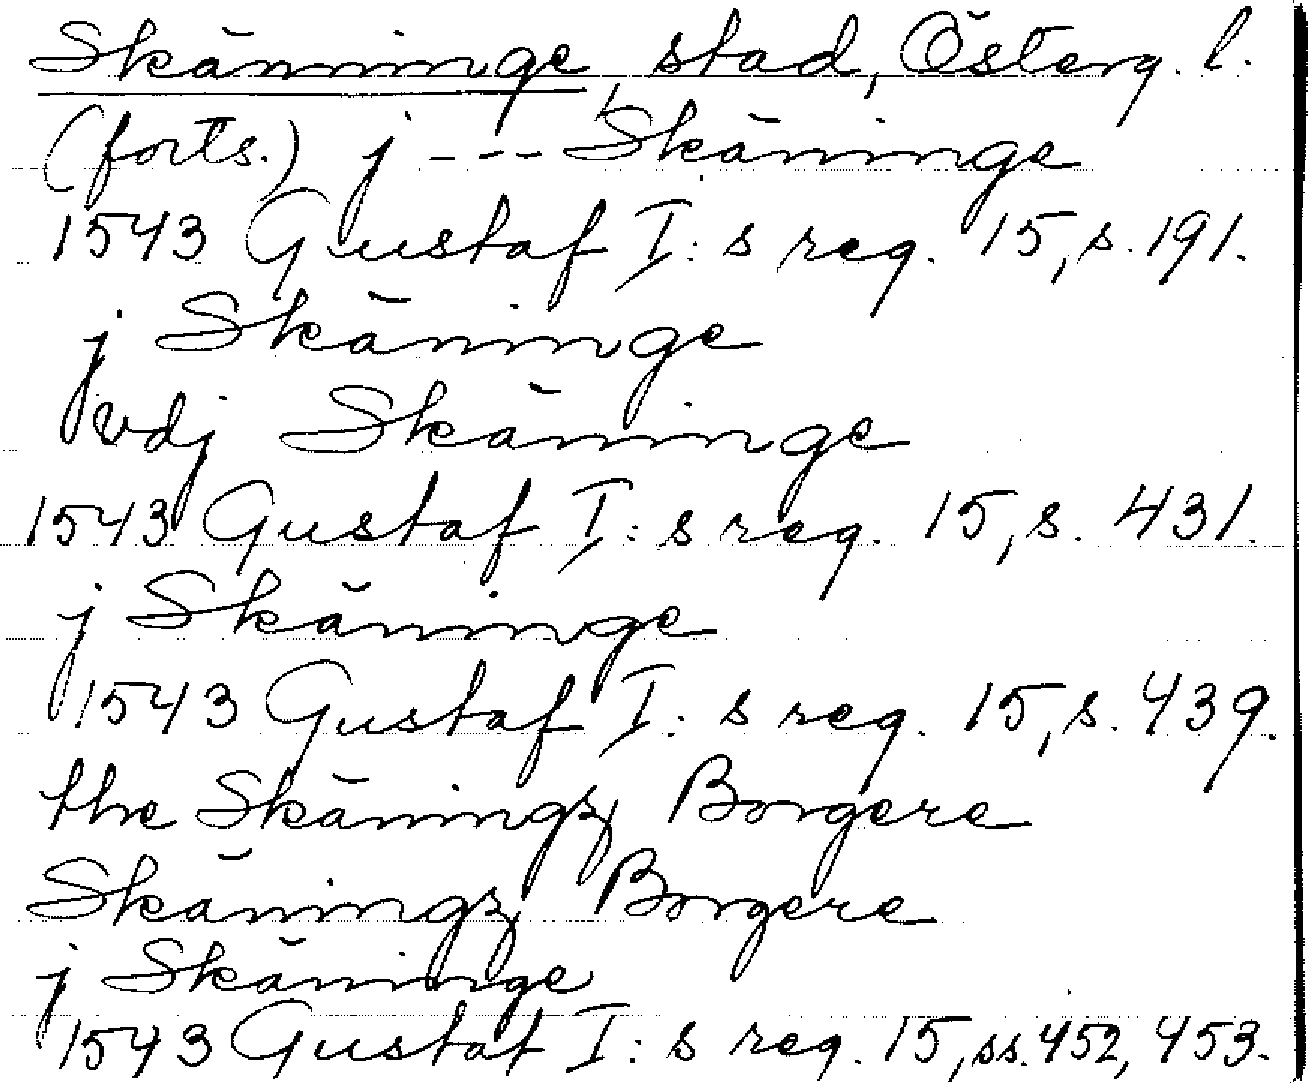 Skänninge, stad, Österg. l.
(forts.) j --- Skäninge
1543 Gustaf I:s reg. 15, s. 191.
j Skäninge
vdj Skäninge
1543 Gustaf I:s reg. 15, s. 431.
j Skäninge
1543 Gustaf I:s reg. 15, s. 439.
the Skäningz Borgere
Skäningz Borgere
j Skäninge
1543 Gustaf I:s reg. 15, ss. 452, 453.